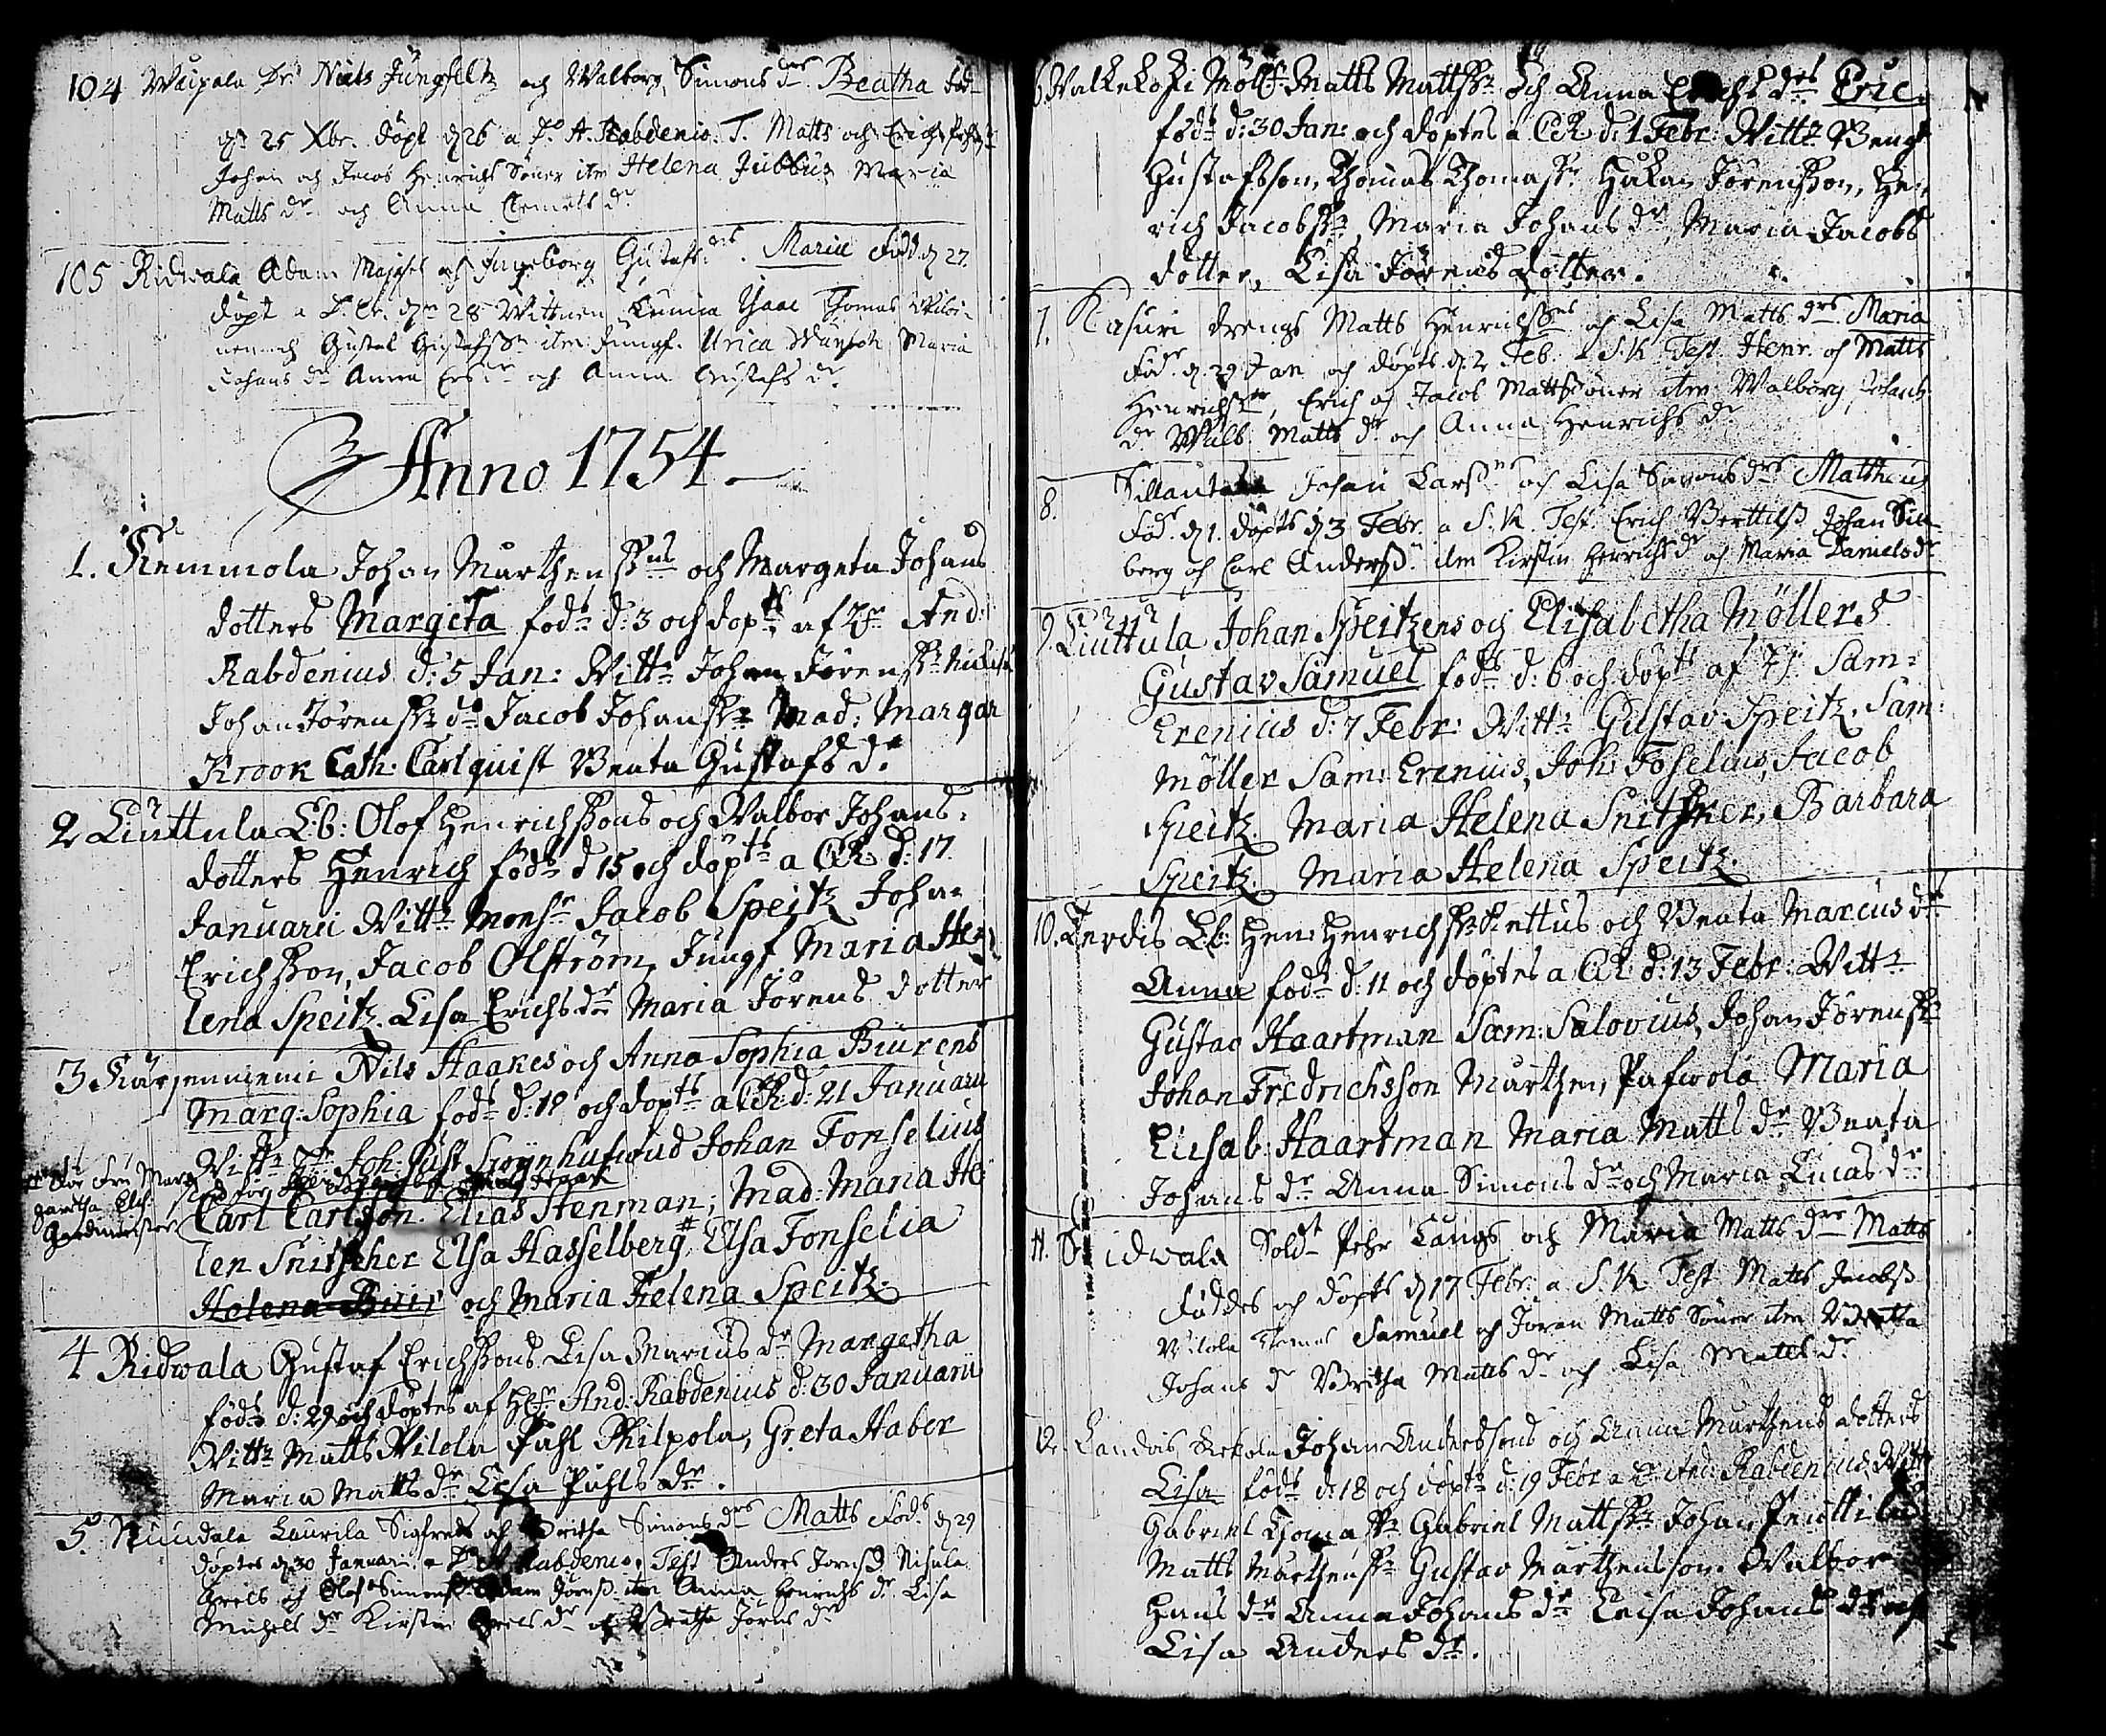 104 Waipala Dr. Niels Jungfeltz och Walborg Simons drs Beatha föd
dn 25 Xbr. döpt d 26 a Do A. Rabdenio. T. Matts och Erich
Johan och Jacob Henrichs Söner itm Helena Jubbus Maria
Matts dr och Anna Clemets dr
105 Ridwala Adam och Ingeborg Gustafs drs. Maria född d 27.
döpt a dn 28 Wittnen Isaac Thomas
och Gustaf Gustafsson itm Jungf. Ulrica Maria
Johans dr Anna och Anna Gustafs dr
Anno 1754
1. Kemmola Johan Marthensons och Margeta Johans
dotters Margeta föds d: 3 och döpts af And:
Rabdenius d: 5 Jan: Wittn Johan Jörenss
Johan Jörenss do Jacob Johanss Mad: Margar
Krook Cath: Carlquist Beata Gustafs dr
2 Liuttula Lb: Olof Henrichssons och Walbor Johans
dotters Henrich föds d 15 och döpts a CR d: 17
Januarii Wittn Monsr Jacob Speitz Joha-
Erichsson, Jacob Olström, Jungf Maria He-
lena Speitz. Lisa Erichs dr Maria Jörens dotter
3 Kärjenniemi Nils Haakes och Anna Sophia Biurens
Marg: Sophia föds d: 19 och döpts a CR d: 21 Januarii
Wittn Joh: Gust Johan Fonselius
Fru Marg
garetha Elis
Gerdmeister
Carl Carlson. Elias Stenman, Mad: Maria He
len Snitscher Elsa Hasselberg # Elsa Fonselia
Helena Biur och Maria Helena Speitz.
4 Ridwala Gustaf Erichssons Lisa Marcus dr Margetha
föds d: 29 och döptes af And: Rabdenius d: 30 Januarii
Wittn Matts Wilola Påhl Philpola, Greta Haber
Maria Matts dr Lisa Påhls dr.
5. Laurila Sigfreds och Britha Simons drs Matts föds d 29
döptes d 30 Januari a Rabdenio. Test Anders Jörenss
Grels och Olof Simonss Adam Jörenss itm Anna Henrichs dr Lisa
Michels dr Kirstin Grels dr och Britha Jörens dr
6 Walkekoski Matts Mattss och Anna Erichs drs Eric.
föds d: 30 Jan: och döptes a CR d: 1 Febr: Wittn Bengt
Gustafsson, Thomas Thomass Håkan Jörensson, He-
rich Jacobss, Maria Johans dr, Maria Jacobs
dotter, Lisa Jörens dotter.
7. Kasuri drengs Matts Henrichssons och Lisa Matts drs Maria
föds d. 29 Jan och döpts d. 2 Feb. a S.K. Test. Henr. och Matts
Henrichssöner, Erich och Jacob Mattssöner itm Walborg Johans
dr Walb. Matts dr och Anna Henrichs dr
8. Sillantaka Johan Larss och Lisa Simons drs Mattheus
föds d 1. döpts d 3 Febr. a S.K. Test. Erich Bertills Johan Sill
berg och Carl Anderss. itm Kirstin Henrichs dr och Maria Daniels dr
9. Liuttula Johan Speitzens och Elisabetha Möllers
Gustav Samuel föds d: 6 och döpts af Sam:
Erenius d: 7 Febr: Wittn Gustav Speitz, Sam:
Möller Sam: Erenius, Joh: Foselius, Jacob
Speitz. Maria Helena Snitsker, Barbara
Speitz. Maria Helena Speitz.
10. Terdis Lb: Hen: Henrichss och Beata Marcus drs
Anna föds d: 11 och döptes a CR d: 13 Febr: Wittn
Gustav Haartman Sam: Salovius, Johan Jörenss
Johan Fredrichsson Marthen, Pafwola Maria
Elisab: Haartman Maria Matts dr Beata
Johans dr Anna Simons dr och Maria Lucas dr
11. Ridwala Soldt Pehr Långs och Maria Matts drs Matts
föddes och döpts d 17 Febr. a S.K. Test Matts Jacobss
Wilola Thomas Samuel och Jöran Matts Söner itm Britha
Johans dr Britha Matts dr och Lisa Matts dr
12. Landis Johan Anderssons och Anna Marthens dotters
Lisa föds d: 18 och döpts d: 19 Febr a And: Rabdenius Wittn
Gabriel Thomass Gabriel Mattss Johan
Matts Marthenss Gustav Marthensson. Walbor
Hans dr Anna Johans dr Leisa Johans dr och
Lisa Anders dr.